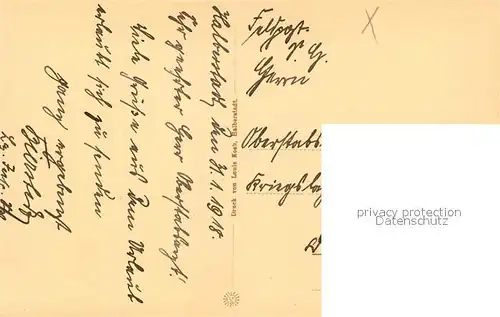 Halberstadt, den 31.1.1918.
Sehr geehrter Herr Oberstabsarzt!
Viele Grüße aus dem Urlaub
erlaubt sich zu senden
ganz ergebenst
Druck von Louis Koch, Halberstadt.
Feldpost
Herrn
Oberstabs
Kriegsla
privacy protection
Datenschutz